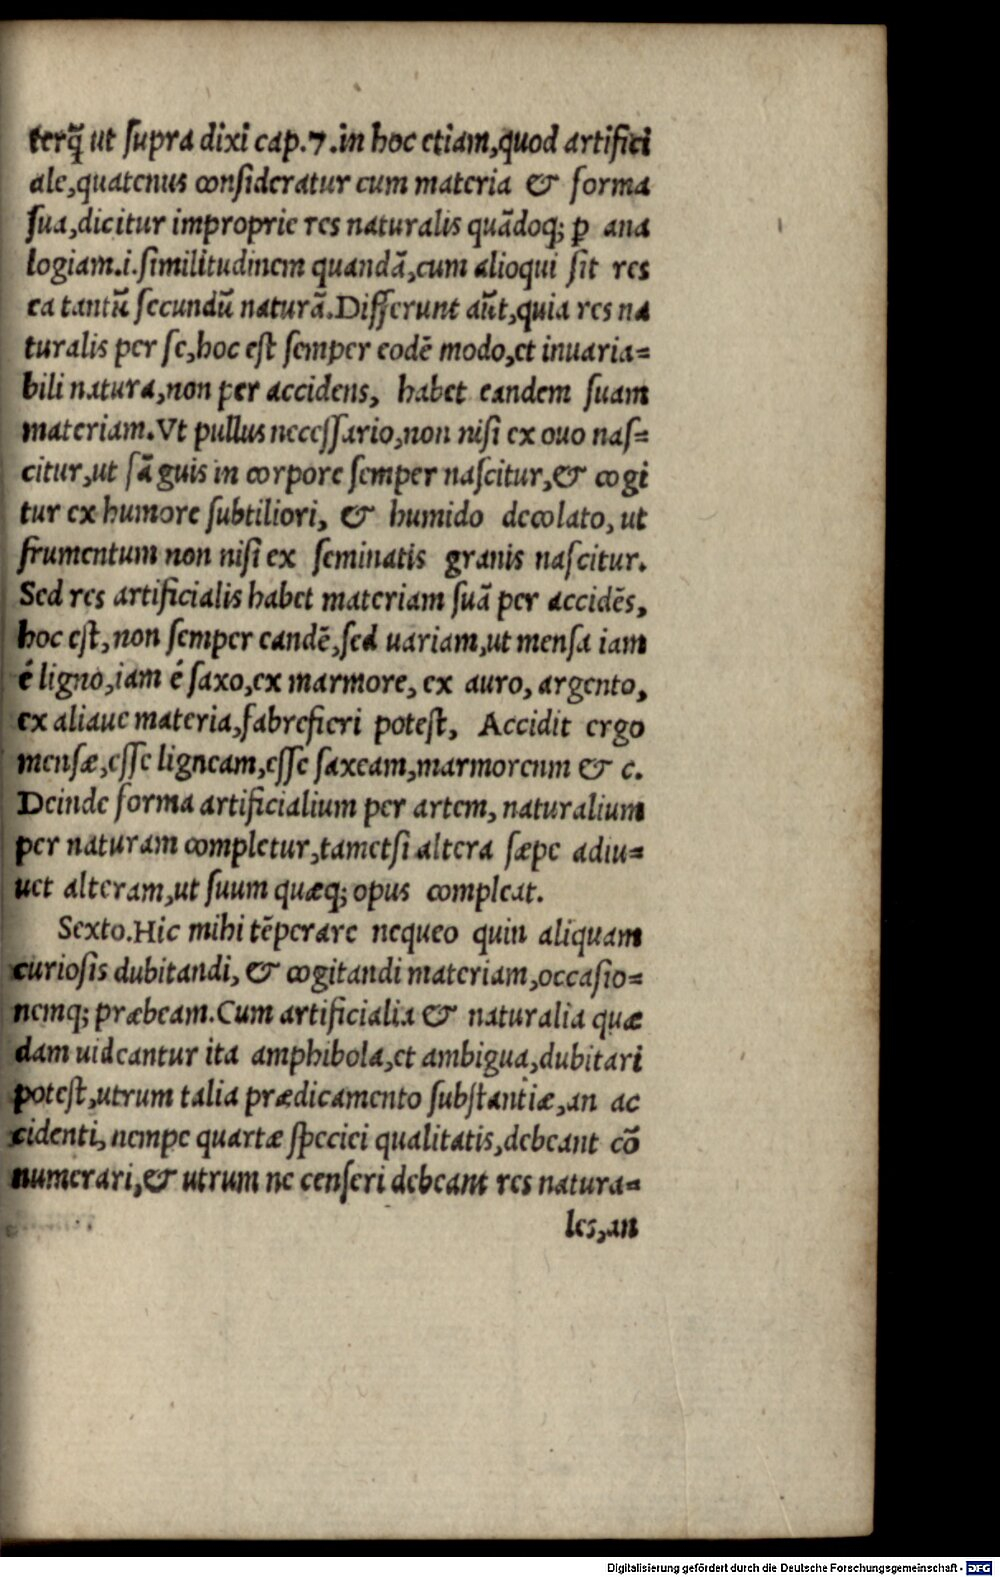 terq̃ ut ſupra dixi cap.7.in hoc etiam,quod artifici
ale,quatenus conſideratur cum materia & forma
ſua,dicitur improprie res naturalis quãdoq; ꝑ ana
logiam.i.ſimilitudinem quandã,cum alioqui ſit res
ea tantũ ſecundũ naturã.Differunt aũt,quia res na
turalis per ſe,hoc eſt ſemper eodẽ modo,et inuaria=
bili natura,non per accidens, habet eandem ſuam
materiam.Vt pullus neceſſario,non niſi ex ouo naſ=
citur,ut ſãguis in corpore ſemper naſcitur,& cogi
tur ex humore ſubtiliori, & humido decolato, ut
frumentum non niſi ex ſeminatis granis naſcitur.
Sed res artificialis habet materiam ſuã per accidẽs,
hoc eſt, non ſemper eandẽ,ſed uariam,ut menſa iam
é ligno,iam é ſaxo,ex marmore, ex auro, argento,
ex aliaue materia,fabrefieri poteſt, Accidit ergo
menſæ,eſſe ligneam,eſſe ſaxeam,marmoreum & c.
Deinde forma artificialium per artem, naturalium
per naturam completur,tametſi altera ſæpe adiu=
uet alteram,ut ſuum quæq; opus compleat.
Sexto.Hic mihi tẽperare nequeo quin aliquam
curioſis dubitandi, & cogitandi materiam,occaſio=
nemq; præbeam.Cum artificialia & naturalia quæ
dam uideantur ita amphibola,et ambigua,dubitari
poteſt,utrum talia prædicamento ſubſtantiæ,an ac
cidenti, nempe quartæ ſpeciei qualitatis,debeant cõ
numerari,& utrum ne cenſeri debeant res natura=
les,an
Digitalisierung gefördert durch die Deutsche Forschungsgemeinschaft - DFG